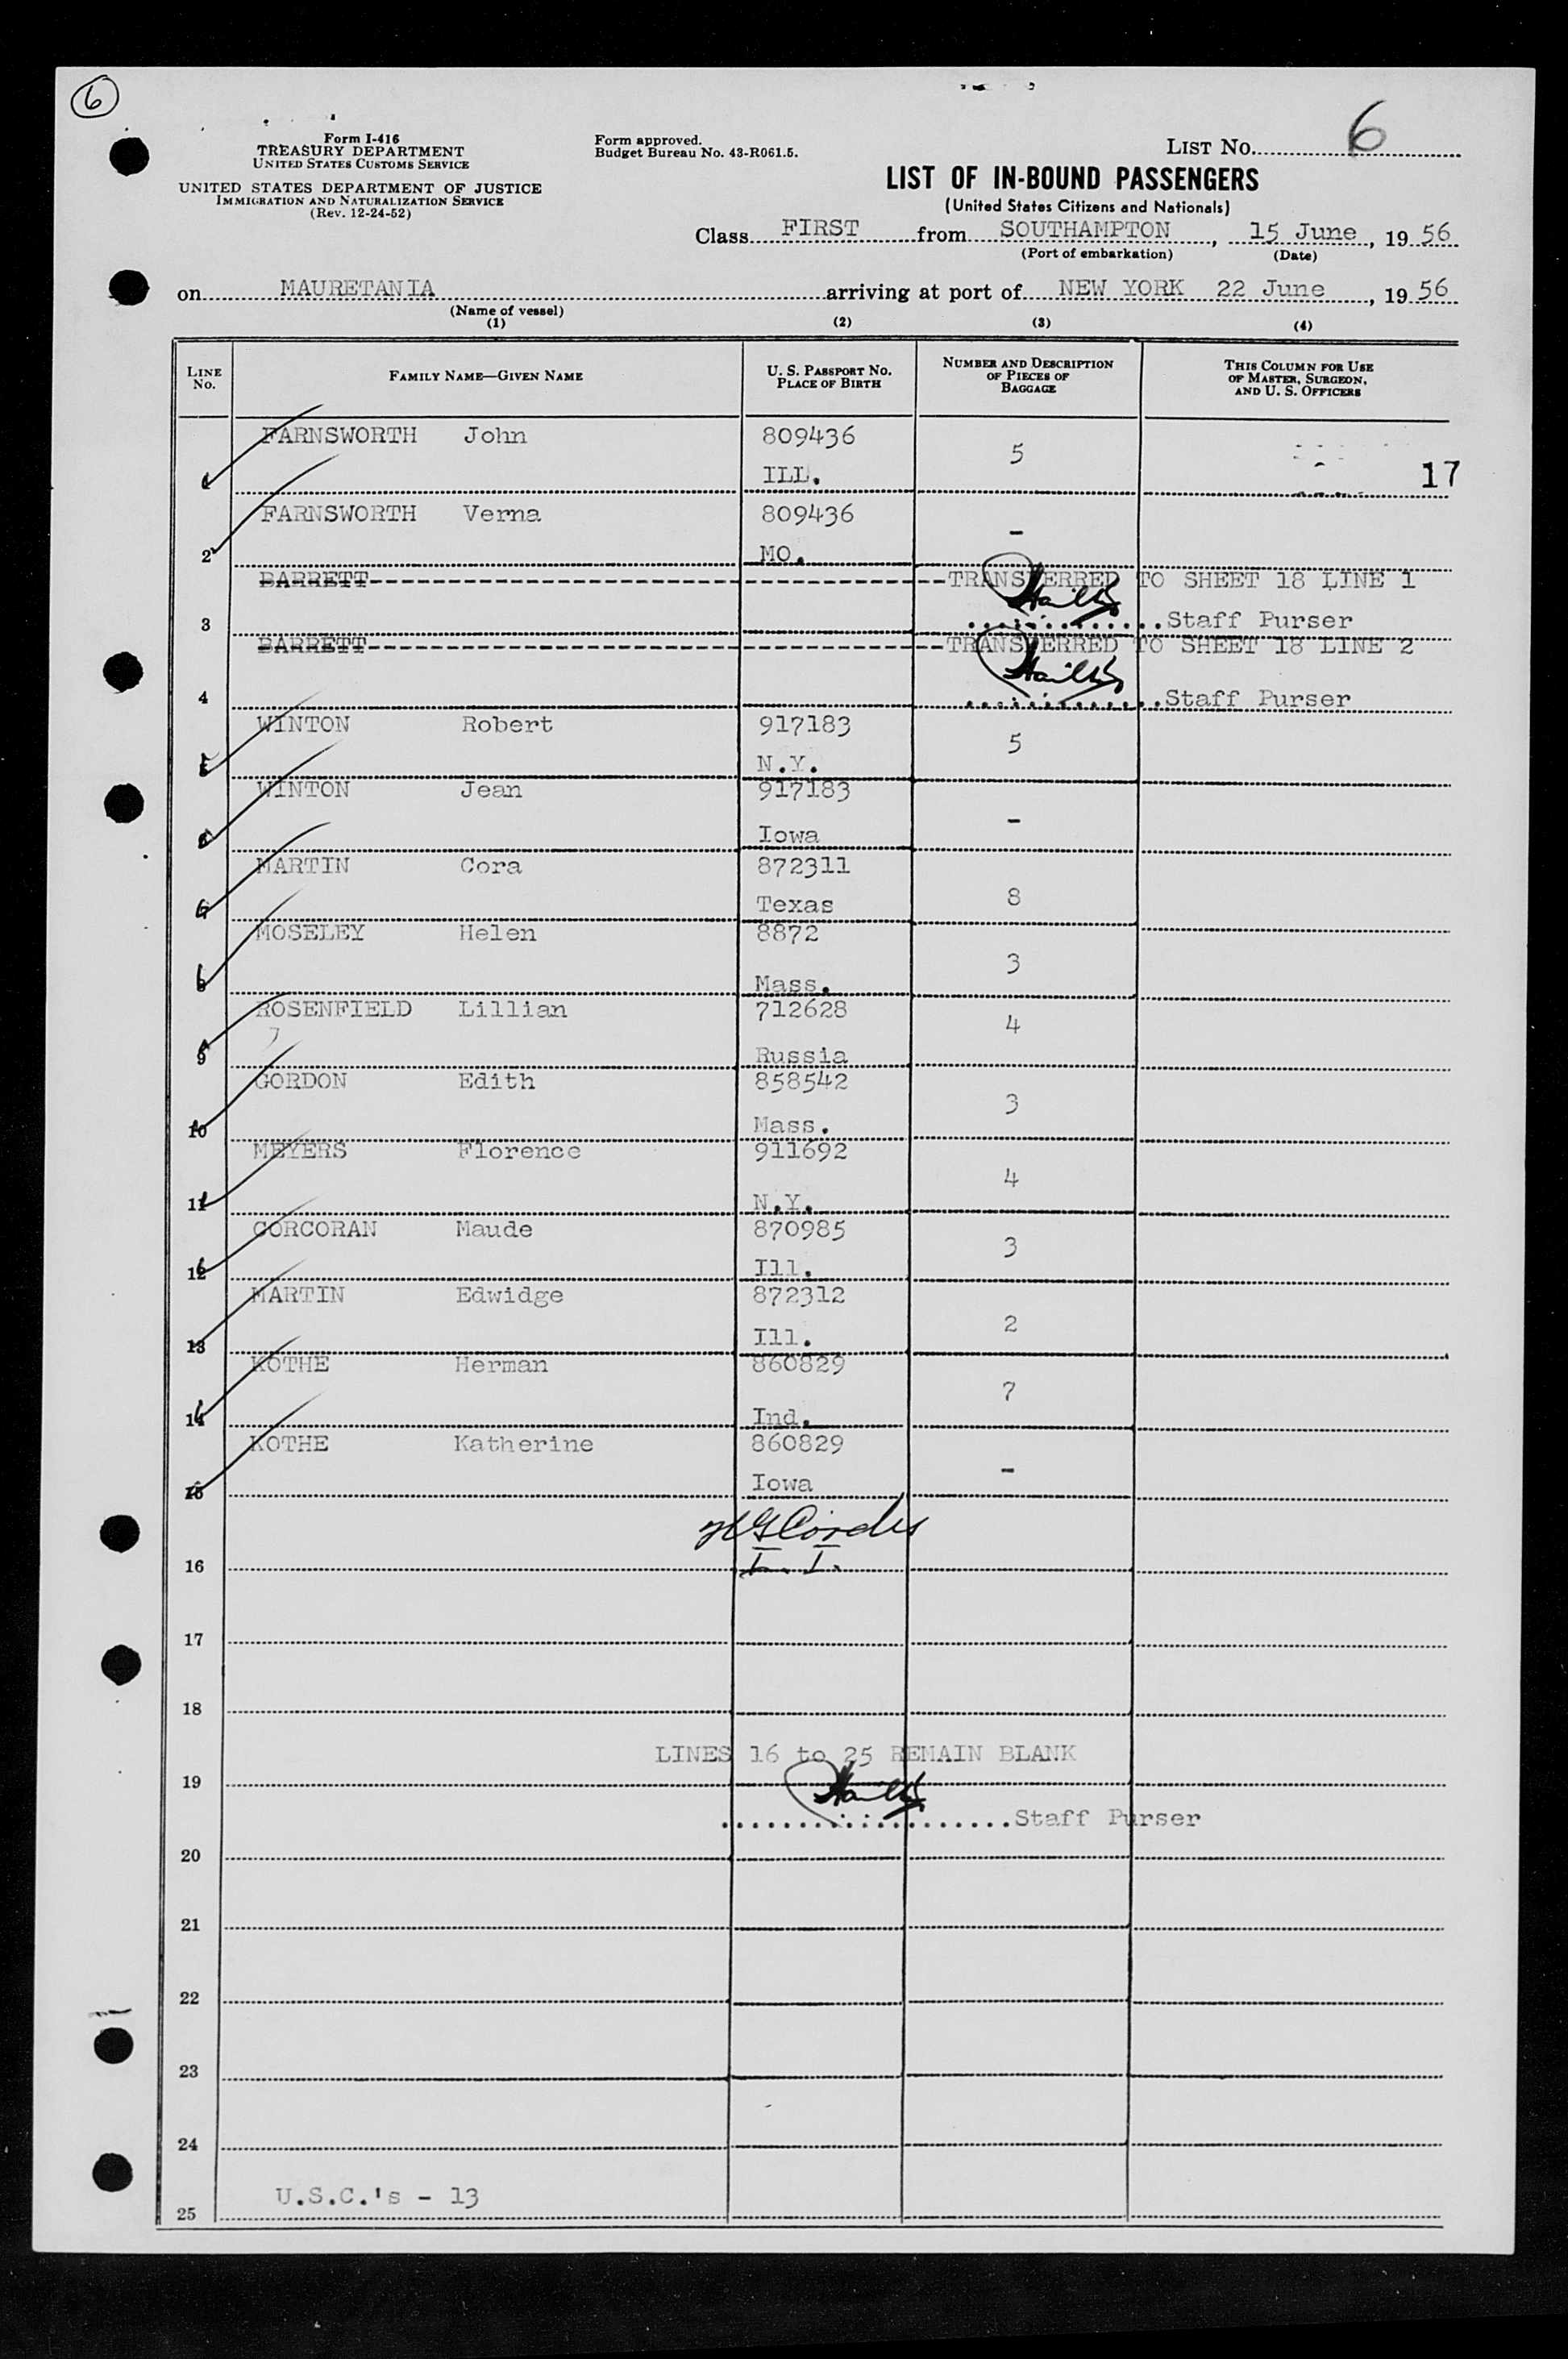 6
Form I-416
TREASURY DEPARTMENT
UNITED STATES CUSTOMS SERVICE
UNITED STATES DEPARTMENT OF JUSTICE
IMMIGRATION AND NATURALIZATION SERVICE
(Rev. 12-24-52)
Form approved.
Budget Bureau No. 43-R061.5.
LIST No. 6
LIST OF IN-BOUND PASSENGERS
(United States Citizens and Nationals)
Class FIRST from SOUTHAMPTON, 15 June, 19 56
(Port of embarkation) (Date)
on MAURETANIA arriving at port of NEW YORK 22 June, 19 56
(Name of vessel)
(1) (2) (3) (4)
LINE No. FAMILY NAME—GIVEN NAME U. S. PASSPORT No. PLACE OF BIRTH NUMBER AND DESCRIPTION OF PIECES OF BAGGAGE THIS COLUMN FOR USE OF MASTER, SURGEON, AND U. S. OFFICERS
FARNSWORTH John 809436 5
1 ILL. 17
FARNSWORTH Verna 809436 -
2 MO.
BARRETT TRANSFERRED TO SHEET 18 LINE 1
3 Staff Purser
BARRETT TRANSFERRED TO SHEET 18 LINE 2
4 Staff Purser
WINTON Robert 917183 5
5 N.Y.
WINTON Jean 917183 -
6 Iowa
MARTIN Cora 872311 8
7 Texas
MOSELEY Helen 8872 3
8 Mass.
ROSENFIELD Lillian 712628 4
9 Russia
GORDON Edith 858542 3
10 Mass.
MEYERS Florence 911692 4
11 N.Y.
CORCORAN Maude 870985 3
12 Ill.
MARTIN Edwidge 872312 2
13 Ill.
KOTHE Herman 860829 7
14 Ind.
KOTHE Katherine 860829 -
15 Iowa
16 I. I.
17
18
LINES 16 to 25 REMAIN BLANK
19
Staff Purser
20
21
22
23
24
U.S.C.'s - 13
25